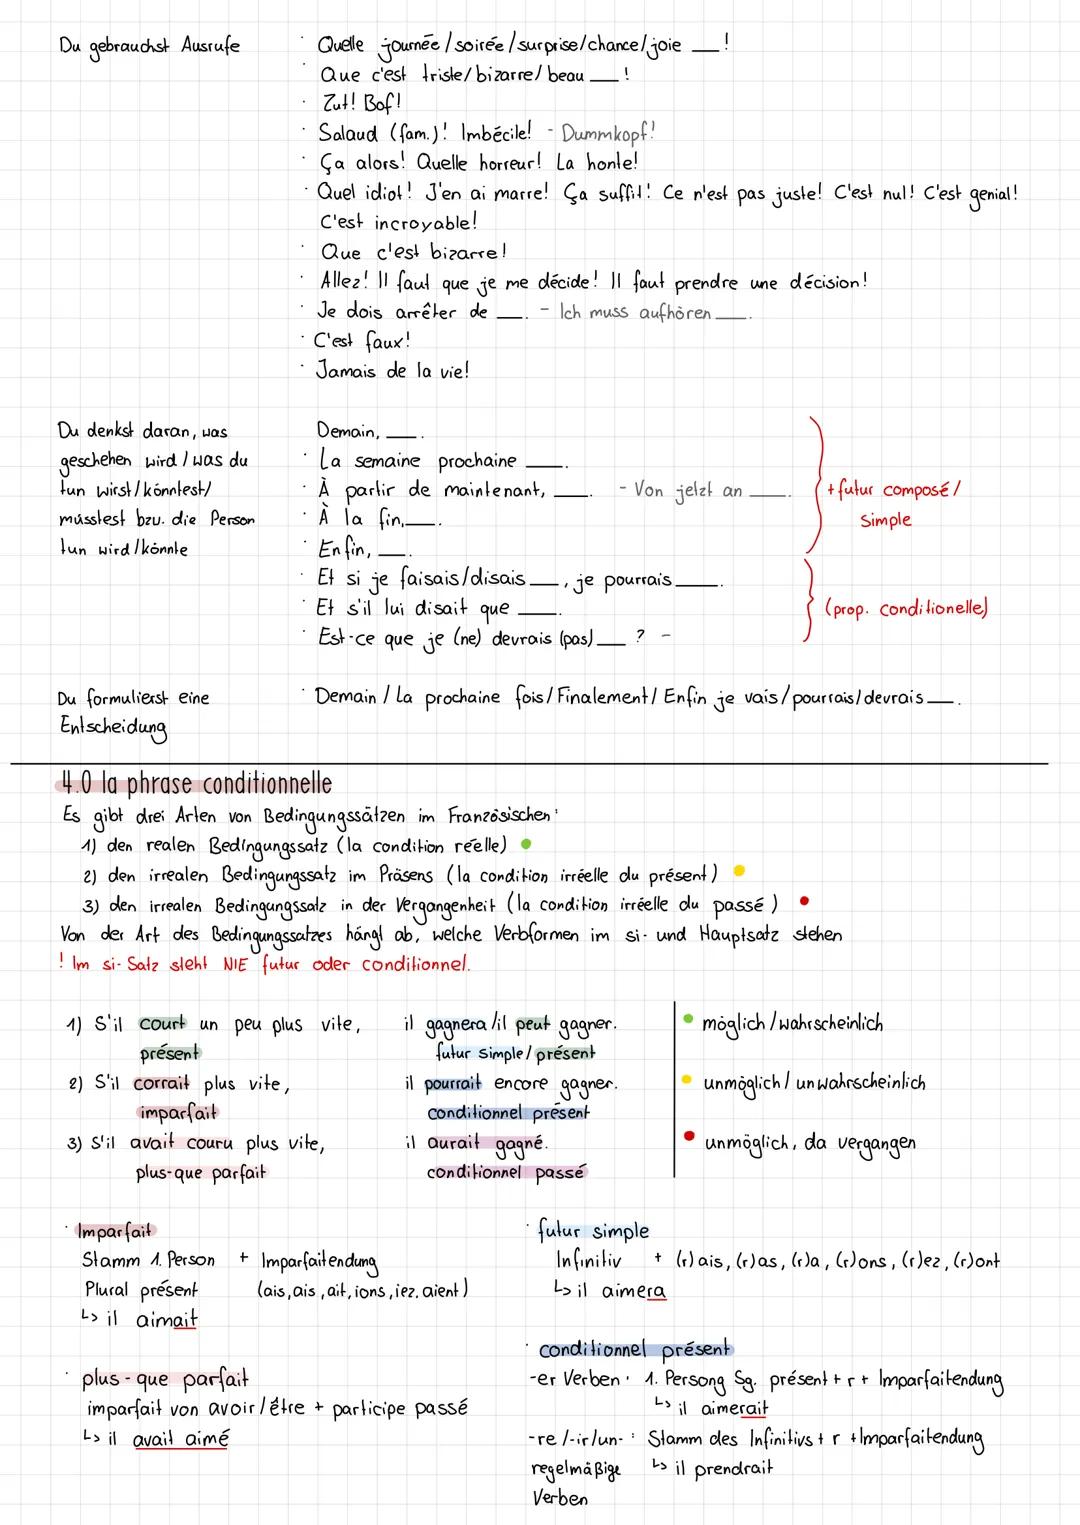 Du gebrauchst Ausrufe
· Quelle journée/soirée/surprise/chance/joie __!
Que c'est triste/bizarre/beau __!
· Zut! Bof!
· Salaud (fam.)! Imbécile! - Dummkopf!
· Ça alors! Quelle horreur! La honte!
· Quel idiot! J'en ai marre! Ça suffit! Ce n'est pas juste! C'est nul! C'est genial!
C'est incroyable!
· Que c'est bizarre!
· Allez! Il faut que je me décide! Il faut prendre une décision!
· Je dois arrêter de __. - Ich muss aufhören __.
· C'est faux!
· Jamais de la vie!
Du denkst daran, was
geschehen wird / was du
tun wirst/könntest/
müsstest bzw. die Person
tun wird/könnte
Demain, __.
· La semaine prochaine __.
· À partir de maintenant, __. - Von jetzt an __.
· À la fin, __.
· Enfin, __.
· Et si je faisais/disais __, je pourrais __.
· Et s'il lui disait que __.
· Est-ce que je (ne) devrais (pas) __ ? -
+ futur composé/
Simple
(prop. conditionelle)
Du formulierst eine
Entscheidung
· Demain / La prochaine fois/Finalement/ Enfin je vais/pourrais/devrais __.
4.0 la phrase conditionnelle
Es gibt drei Arten von Bedingungssätzen im Französischen:
1) den realen Bedingungssatz (la condition réelle)
2) den irrealen Bedingungssatz im Präsens (la condition irréelle du présent)
3) den irrealen Bedingungssatz in der Vergangenheit (la condition irréelle du passé)
Von der Art des Bedingungssatzes hängt ab, welche Verbformen im si- und Hauptsatz stehen
! Im si-Satz steht NIE futur oder conditionnel.
1) S'il court un peu plus vite, il gagnera /il peut gagner. · möglich /wahrscheinlich
présent futur simple/présent
2) S'il corrait plus vite, il pourrait encore gagner. · unmöglich / unwahrscheinlich
imparfait conditionnel présent
3) S'il avait couru plus vite, il aurait gagné. · unmöglich, da vergangen
plus-que parfait conditionnel passé
· Imparfait
Stamm 1. Person + Imparfaitendung
Plural présent (ais, ais, ait, ions, iez, aient)
↳ il aimait
· plus-que parfait
imparfait von avoir/être + participe passé
↳ il avait aimé
· futur simple
Infinitiv + (r)ais, (r)as, (r)a, (r)ons, (r)ez, (r)ont
↳ il aimera
· conditionnel présent
-er Verben: 1. Persong Sg. présent + r + Imparfaitendung
↳ il aimerait
-re/-ir/un-: Stamm des Infinitivs + r + Imparfaitendung
regelmäßige ↳ il prendrait
Verben